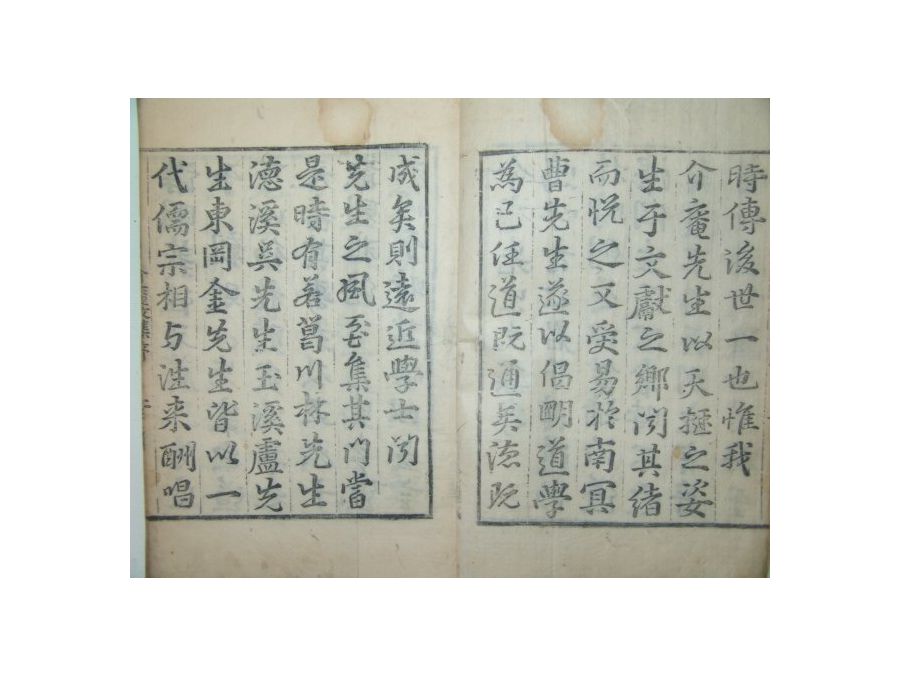 時傳後世一也惟我
介庵先生以天挺之姿
生于文獻之鄉聞其緒
而悅之又受易於南冥
曹先生遂以倡明道學
為己任道既通矣德既
成矣則遠近學士聞
先生之風至集其門當
是時有若葛川林先生
德溪吳先生玉溪盧先
生東岡金先生皆以一
代儒宗相与往来酬唱